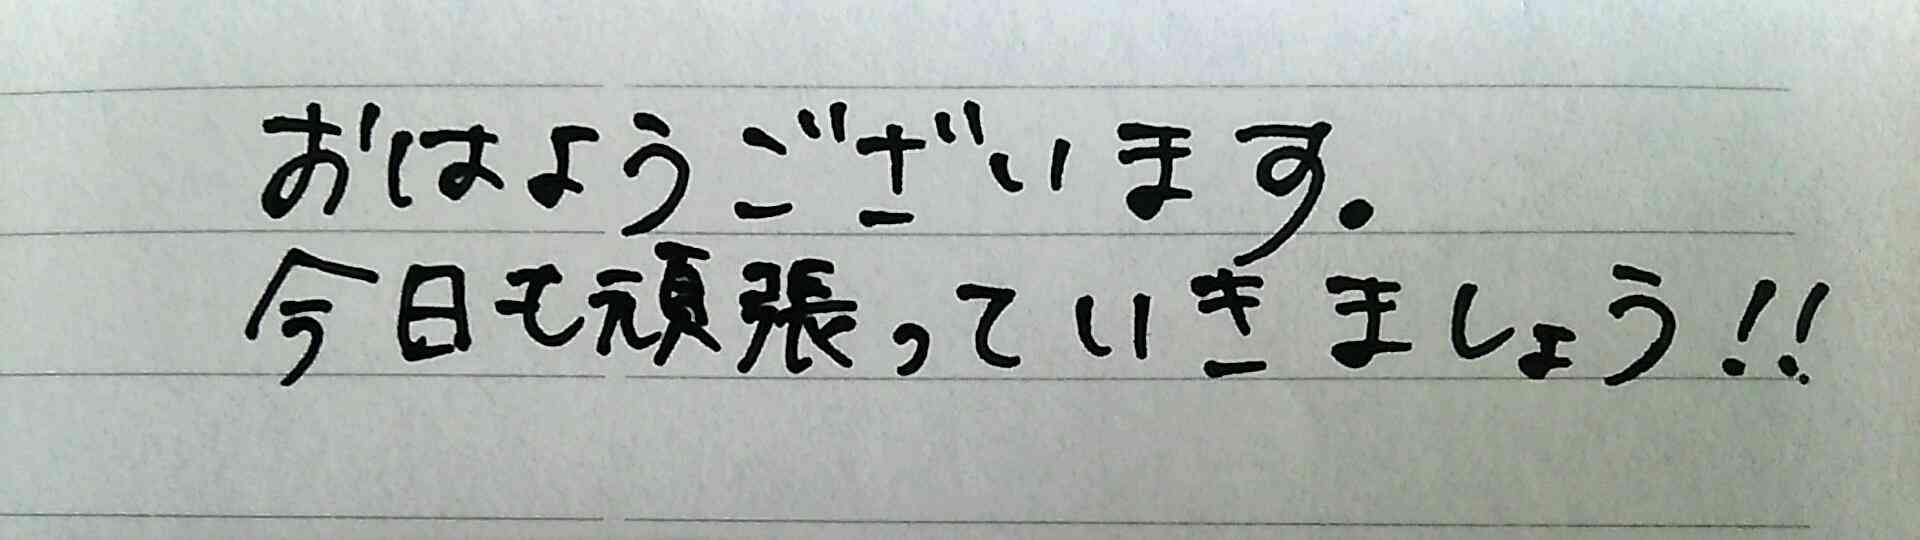 おはようございます.
今日も頑張っていきましょう!!